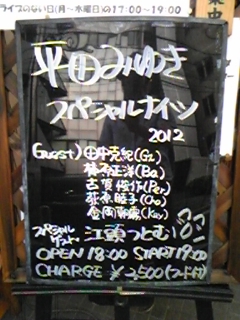 ライブのない日(月～水曜日)の17:00～19:00
平田みゆき
スペシャルナイツ
2012
Guest)田中克紀(Gt)
藤本正洋(Ba)
古賀俊作(Per)
萩原睦子(Cho)
金岡朝霧(Key)
スペシャルゲスト)江頭つとむ
OPEN 18:00 START 19:00
CHARGE ¥2,500(フード付)